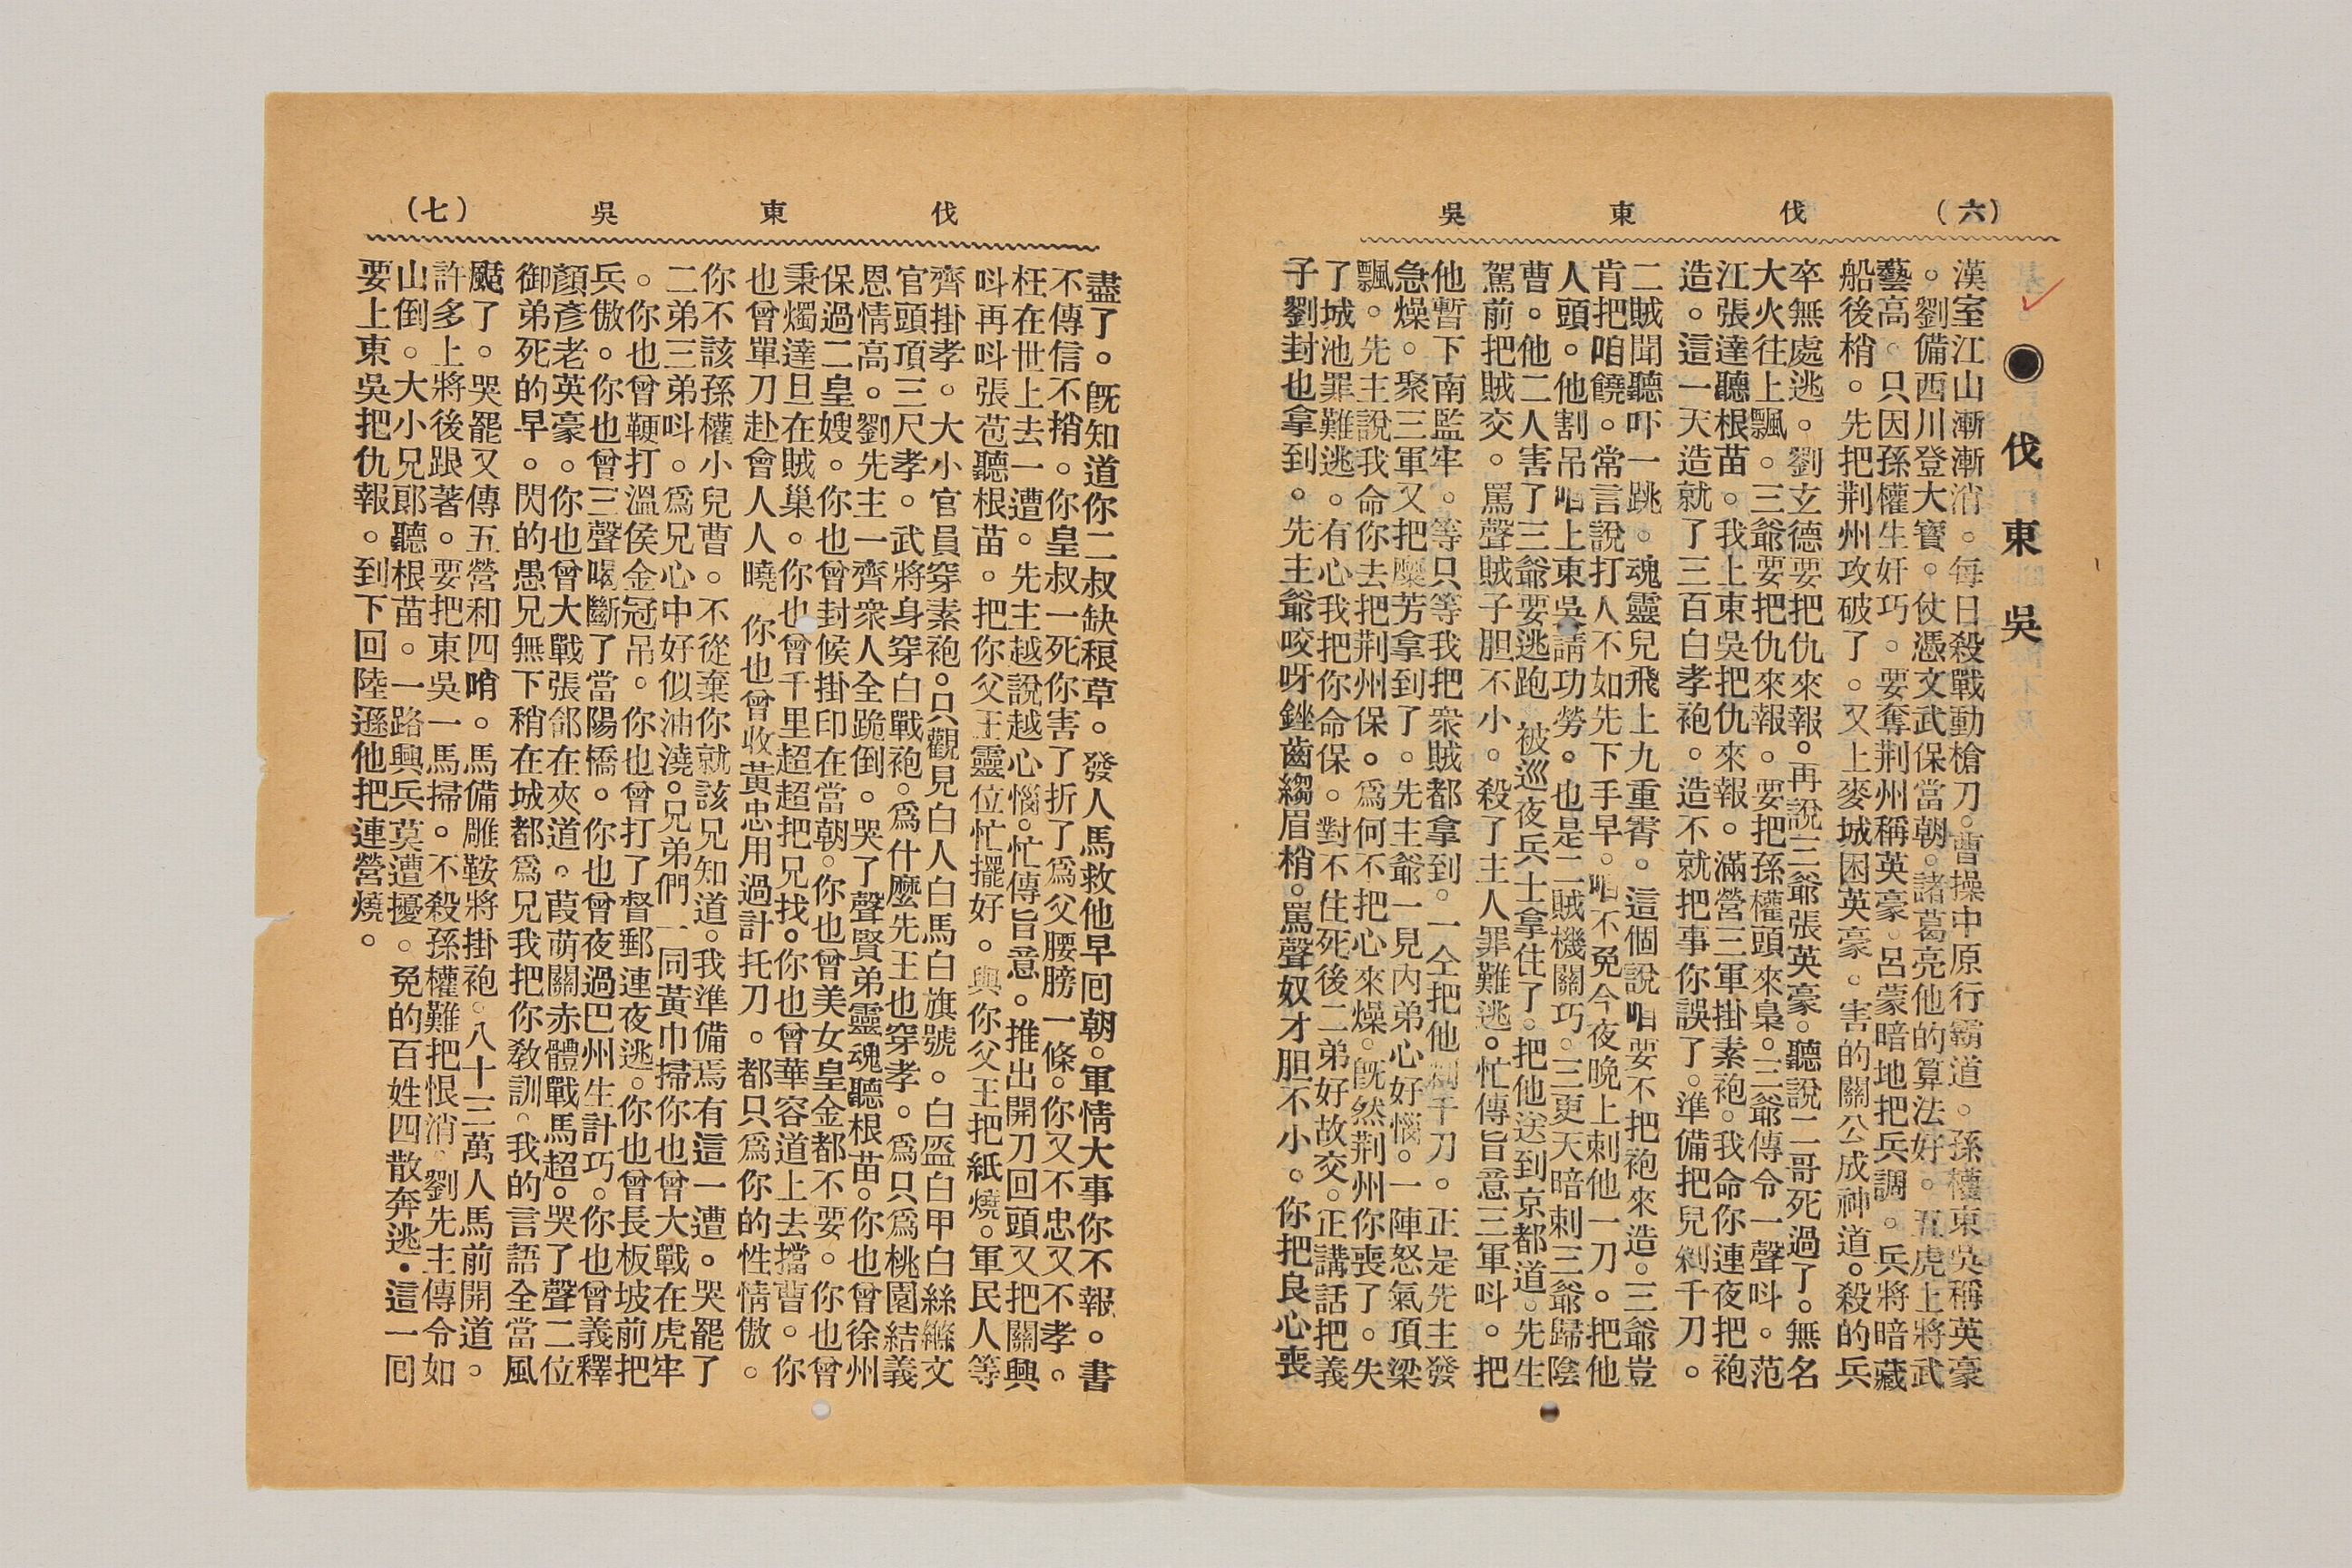 （六）　伐　東　吳
●伐東吳
漢室江山漸漸消。每日殺戰動槍刀。曹操中原行霸道。孫權東吳稱英豪
。劉備西川登大寶。仗憑文武保當朝。諸葛亮他的算法好。五虎上將武
藝高。只因孫權生奸巧。要奪荆州稱英豪。呂蒙暗地把兵調。兵將暗藏
船後梢。先把荆州攻破了。又上麥城困英豪。害的關公成神道。殺的兵
卒無處逃。劉玄德要把仇來報。再說三爺張英豪。聽說二哥死過了。無名
大火往上飄。三爺要把仇來報。要把孫權頭來梟。三爺傳令一聲呌。范
江張達聽根苗。我上東吳把仇來報。滿營三軍掛素袍。我命你連夜把袍
造。這一天造就了三百白孝袍。造不就把事你誤了。準備把兒剁千刀。
二賊聞聽吓一跳。魂靈兒飛上九重霄。這個說咱要不把袍來造。三爺豈
肯把咱饒。常言說打人不如先下手早。咱不免今夜晚上刺他一刀。把他
人頭。他割吊咱上東吳請功勞。也是二賊機關巧。三更天暗刺三爺歸陰
曹。他二人害了三爺要逃跑　被巡夜兵士拿住了。把他送到京都道。先生
駕前把賊交。罵聲賊子胆不小。殺了主人罪難逃。忙傳旨意三軍呌。把
他暫下南監牢。等只等我把衆賊都拿到。一仝把他剮千刀。正是先主發
急燥。聚三軍又把糜芳拿到了。先主爺一見內弟心好惱。一陣怒氣頂梁
飄。先主說我命你去把荆州保。爲何不把心來燥。旣然荆州你喪了。失
了城池罪難逃。有心我把你命保。對不住死後二弟好故交。正講話把義
子劉封也拿到。先主爺咬呀銼齒縐眉梢。罵聲奴才胆不小。你把良心喪
伐　東　吳　（七）
盡了。旣知道你二叔缺粮草。發人馬救他早囘朝。軍情大事你不報。書
不傳信不捎。你皇叔一死你害了折了爲父腰膀一條。你又不忠又不孝。
枉在世上去一遭。先主越說越心惱。忙傳旨意。推出開刀回頭又把關興
呌再呌張苞聽根苗。把你父王靈位忙擺好。與你父王把紙燒。軍民人等
齊掛孝。大小官員穿素袍。只觀見白人白馬白旗號。白盔白甲白絲縧文
官頭頂三尺孝。武將身穿白戰袍。爲什麼先王也穿孝。爲只爲桃園結義
恩情高。劉先主一齊衆人全跪倒。哭了聲賢弟靈魂聽根苗。你也曾徐州
保過二皇嫂。你也曾封候掛印在當朝。你也曾美女皇金都不要。你也曾
秉燭達旦在賊巢。你也曾千里超超把兄找。你也曾華容道上去擋曹。你
也曾單刀赴會人人曉　你也曾收黃忠用過計托刀。都只爲你的性情傲。
你不該孫權小兒曹。不從棄你就該兄知道。我準備焉有這一遭。哭罷了
二弟三弟呌。爲兄心中好似油澆。兄弟們一同黃巾掃你也曾大戰在虎牢
。你也曾鞭打溫侯金冠吊。你也曾打了督郵連夜逃。你也曾長板坡前把
兵傲。你也曾三聲喝斷了當陽橋。你也曾夜過巴州生計巧。你也曾義釋
顏彥老英豪。你也曾大戰張郃在夾道。葭萌關赤體戰馬超。哭了聲二位
御弟死的早。閃的愚兄無下稍在城都爲兄我把你敎訓。我的言語全當風
颳了。哭罷又傳五營和四哨。馬備雕鞍將掛袍。八十三萬人馬前開道。
許多上將後跟著。要把東吳一馬掃。不殺孫權難把恨消。劉先主傳令如
山倒。大小兄郞聽根苗。一路興兵莫遭擾。免的百姓四散奔逃・這一囘
要上東吳把仇報。到下回陸遜他把連營燒。